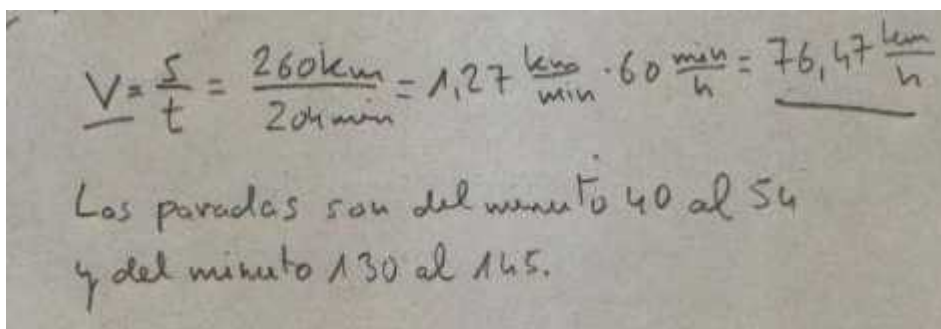 V = s/t = 260km/204min = 1,27 km/min · 60 min/h = 76,47 km/h
Las paradas son del minuto 40 al 54
y del minuto 130 al 145.